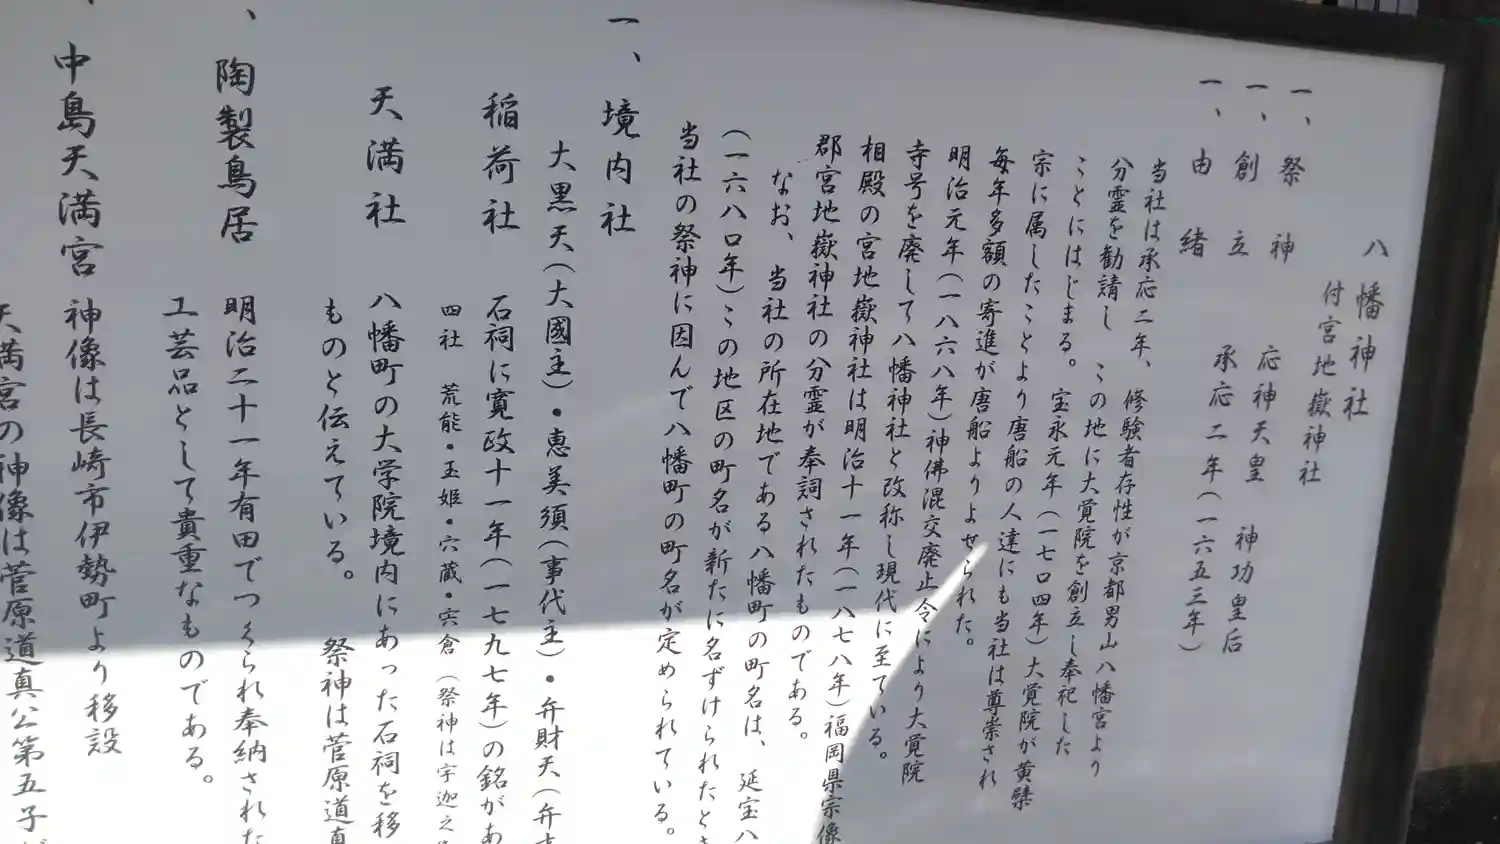 八幡神社
付宮地嶽神社
一、祭神 応神天皇 神功皇后
一、創立 承応二年(一六五三年)
一、由緒
当社は承応二年、修験者存性が京都男山八幡宮より
分霊を勧請し この地に大覚院を創立し奉祀した
ことにはじまる。 宝永元年(一七〇四年)大覚院が黄檗
宗に属したことより唐船の人達にも当社は尊崇され
毎年多額の寄進が唐船よりよせられた。
明治元年(一八六八年)神佛混交廃止令により大覚院
寺号を廃して八幡神社と改称し現代に至ている。
相殿の宮地嶽神社は明治十一年(一八七八年)福岡県宗像
郡宮地嶽神社の分霊が奉詞されたものである。
なお、当社の所在地である八幡町の町名は、延宝八
(一六八〇年)この地区の町名が新たに名ずけられたとき
当社の祭神に因んで八幡町の町名が定められている。
一、境内社
大黒天(大國主)・恵美須(事代主)・弁財天(弁
稲荷社 石祠に寛政十一年(一七九七年)の銘があ
四社 荒熊・玉姫・穴蔵・宍倉(祭神は宇迦之
天満社 八幡町の大学院境内にあった石祠を移
ものと伝えている。 祭神は菅原道真
、陶製鳥居 明治二十一年有田でつくられ奉納された
工芸品として貴重なものである。
、中島天満宮 神像は長崎市伊勢町より移設
天満宮の神像は菅原道真公第五子が